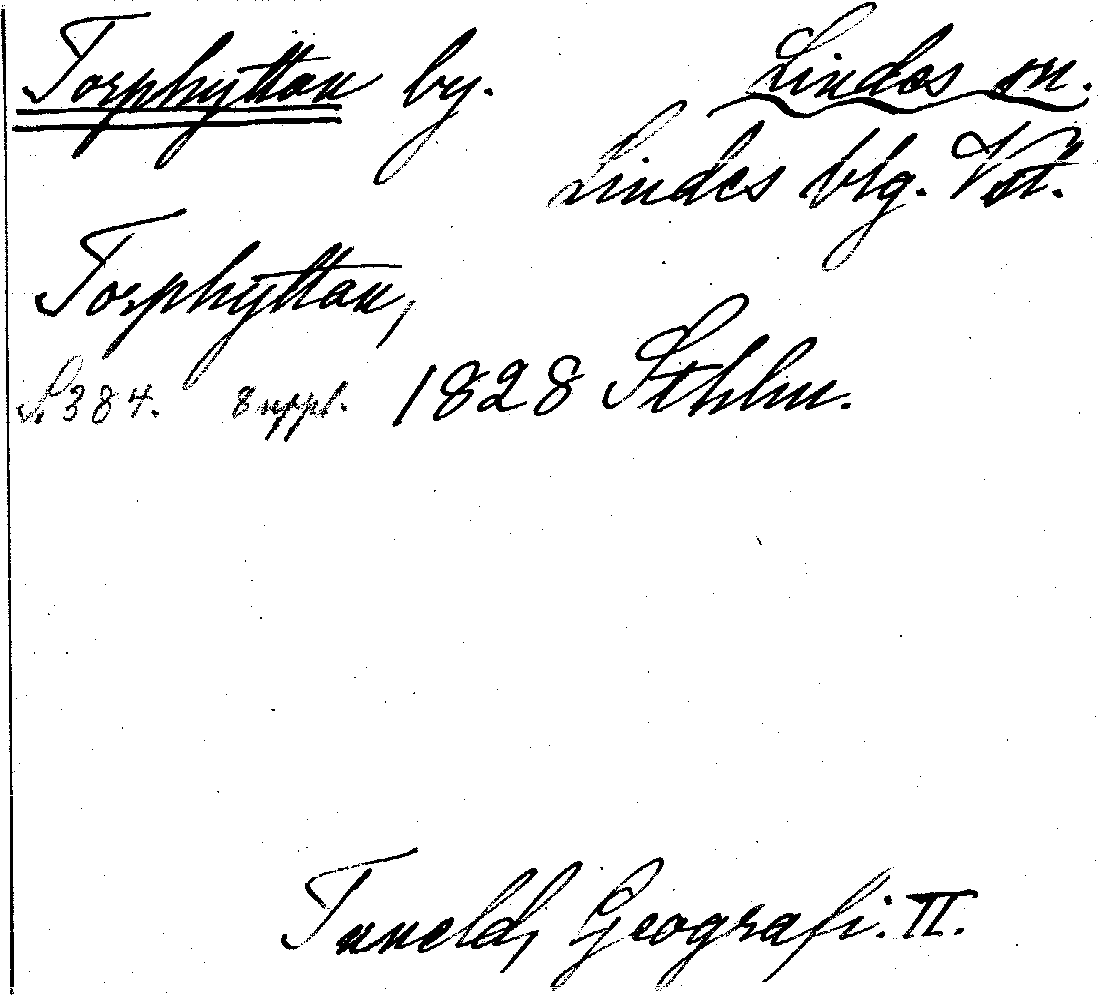 Torphyttan by. Lindes sn.
Lindes blg. Vstl.
Torphyttan,
S. 384. 8 uppl. 1828 Sthlm.
Tuneld, Geografi. II.